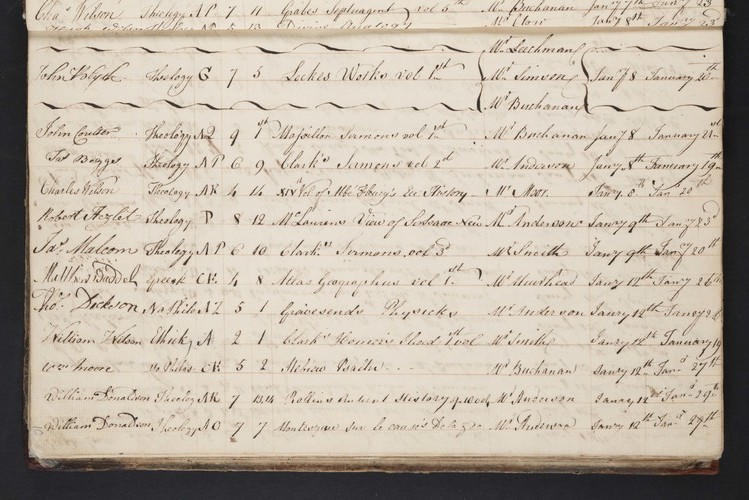 Chas Wilson Theology AP 7 11 vol 5th Mr Buchanan Jany 7th Jany 23
Mr Leechman
John Theology G 7 5 Lockes Works vol 1st Mr Simson Jany 8 January 20th
Mr Buchanan
John Coulter Theology 9 1st Massillon Sermons vol 1st Mr Buchanan Jany 8 January 21st
Jas Boggs Theology AP 6 9 Clark's Sermons vol 2d Mr Anderson Jany 8th 19th
Charles Wilson Theology AK 4 14 Vol of Abbe Fleury's Ec History Mr Moor Jany 8th Jany 20th
Robert Theology P 8 12 McLaurins View of Sr Isaac New Mr Anderson Jany 9th Jany 23d
Jas Malcom Theology AP 6 10 Clarks Sermons vol 3d Mr Smith Jany 9th Jany 20th
Matthew Greek CE 4 8 Atlas Geographus vol 1st Mr Muirhead Jany 12th Jany 26th
Thos Dickson Na Philo AZ 5 1 Gravesends Physicks Mr Anderson Janry 12th Janry 26
William Wilson Ethick A 2 1 Clark's Homers Iliad 1st vol Mr Smith Janry 12th January 19
Wm Moore CE 5 2 Mr Buchanan Janry 12th Jany 27th
William Donaldson Theology AK 7 13,14 Rollins Antient History Mr Anderson Janry 12 Jany 29th
William Donaldson Theology AO 7 7 Montesquieu sur le causes De la Mr Anderson Janry 12th Jany 29th